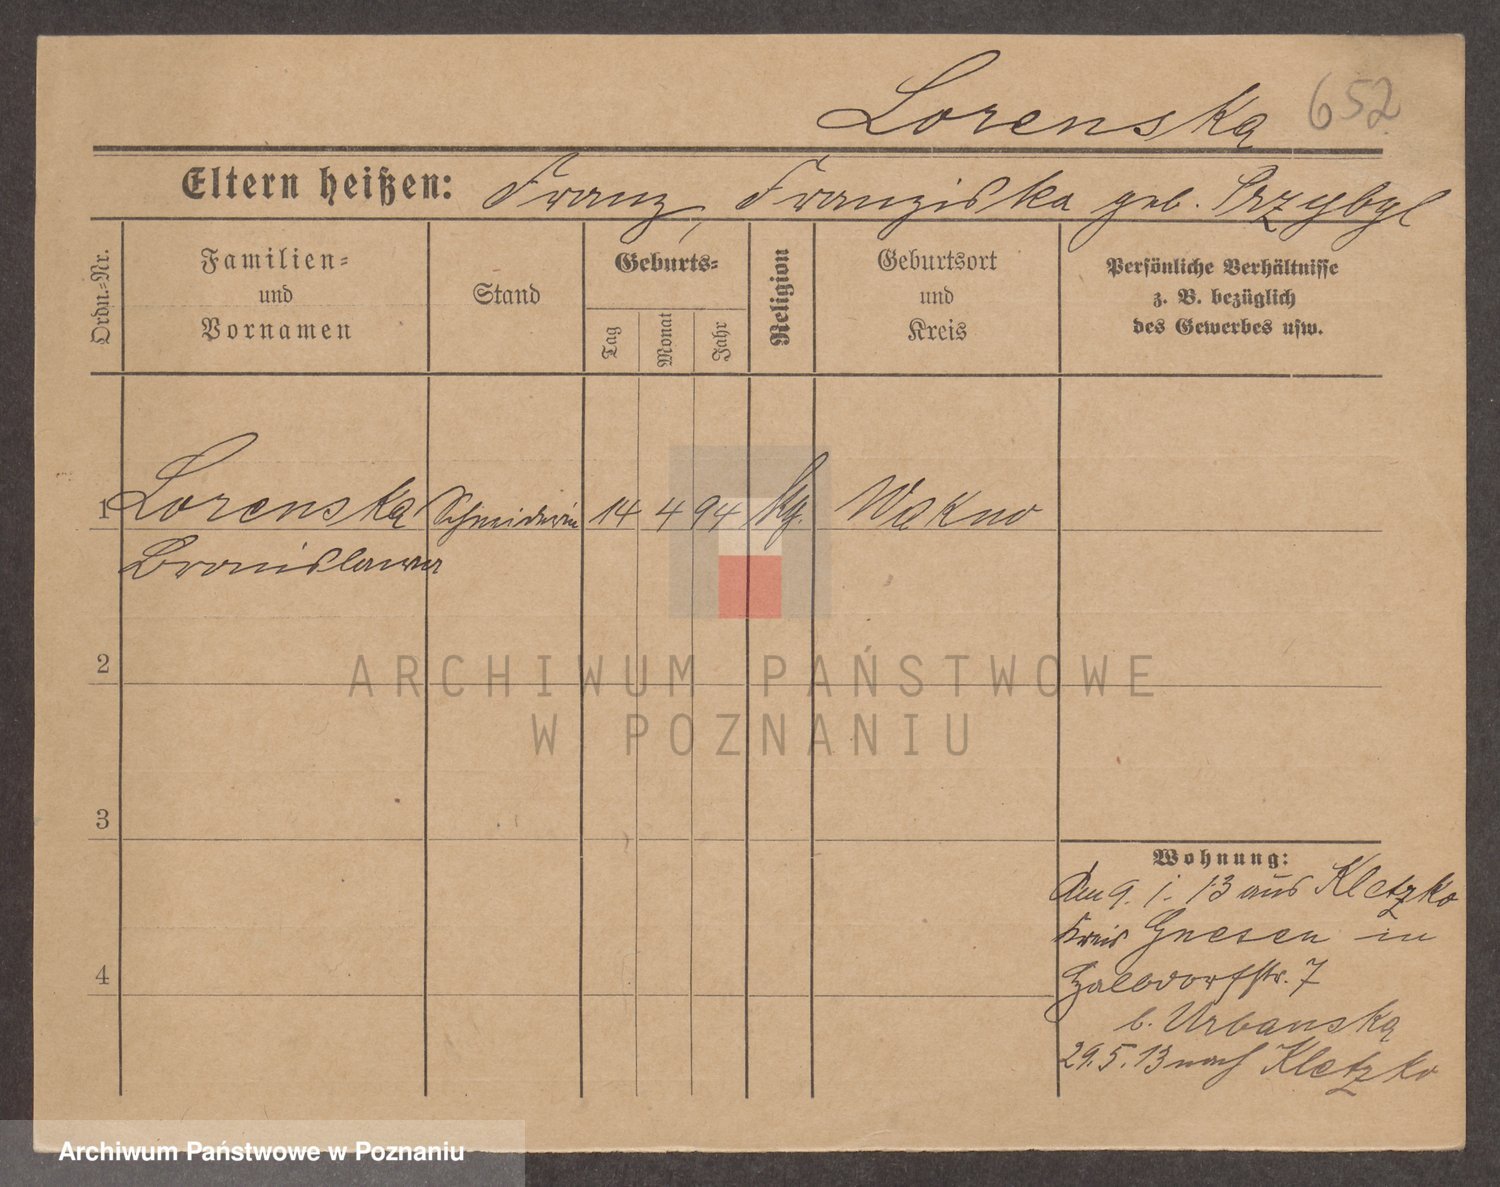 Lorenska 652
Eltern heißen: Franz, Franziska geb. Przybyl
Ordn.-Nr.
Familien-
und
Vornamen
Stand
Geburts-
Tag
Monat
Jahr
Religion
Geburtsort
und
Kreis
Persönliche Verhältnisse
z. B. bezüglich
des Gewerbes usw.
1 Lorenska Schneiderin 14 4 94 Wakno
Bronislawa
2
3
4
Wohnung:
Den 9. 1. 13 aus Kletzko
Kreis Gnesen in
Halbdorfstr. 7
b. Urbanska
29.5.13 nach Kletzko
ARCHIWUM PAŃSTWOWE
W POZNANIU
Archiwum Państwowe w Poznaniu